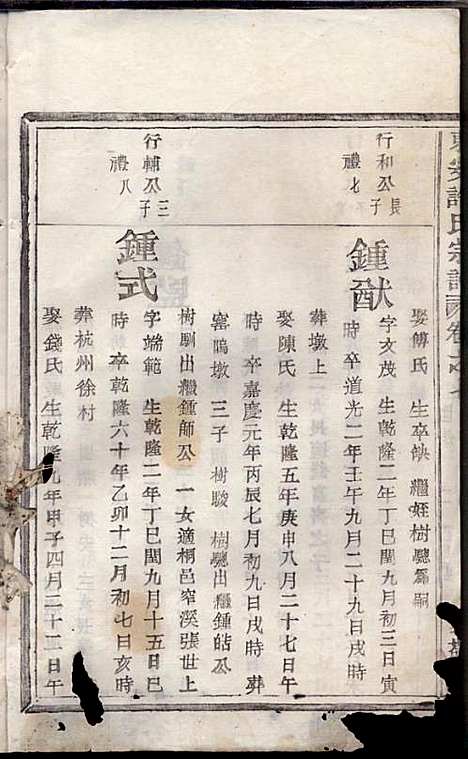 許氏宗譜
娶傅氏　生卒缺　繼姪樹驄爲嗣
行和公長子
禮七
鍾猷
字文茂　生乾隆二年丁巳閏九月初三日寅
時　卒道光二年壬午九月二十九日戌時
葬墩上
娶陳氏　生乾隆五年庚申八月二十七日午
時　卒嘉慶元年丙辰七月初九日戌時　葬
窰鳴墩　三子　樹駿　樹驄出繼鍾皓公
樹駉出繼鍾師公　一女適桐邑窄溪張世上
行輔公三子
禮八
鍾式
字端範　生乾隆二年丁巳閏九月十五日巳
時　卒乾隆六十年乙卯十二月初七日亥時
葬杭州徐村
娶錢氏　生乾隆九年甲子四月二十二日午